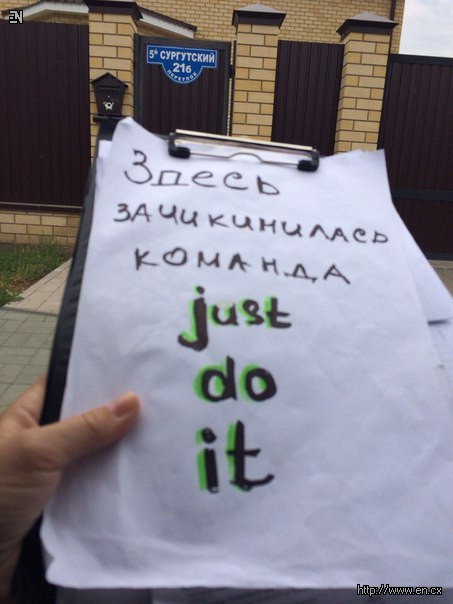 EN
5й СУРГУТСКИЙ
21б
ПЕРЕУЛОК
Здесь
ЗАЧИКИНИЛАСЬ
КОМАНДА
just
do
it
http://www.en.cx